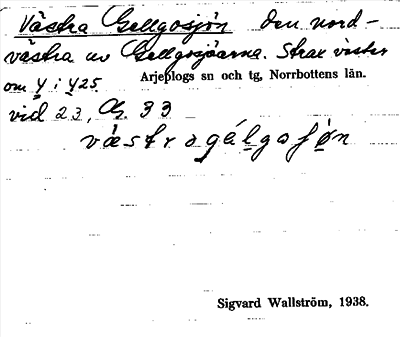 Västra Gellgosjön den nord-
västra av Gellgosjöarna. Strax väster
om y i 425 Arjeplogs sn och tg, Norrbottens län.
vid 23, 33
västra gálgafǿn
Sigvard Wallström, 1938.